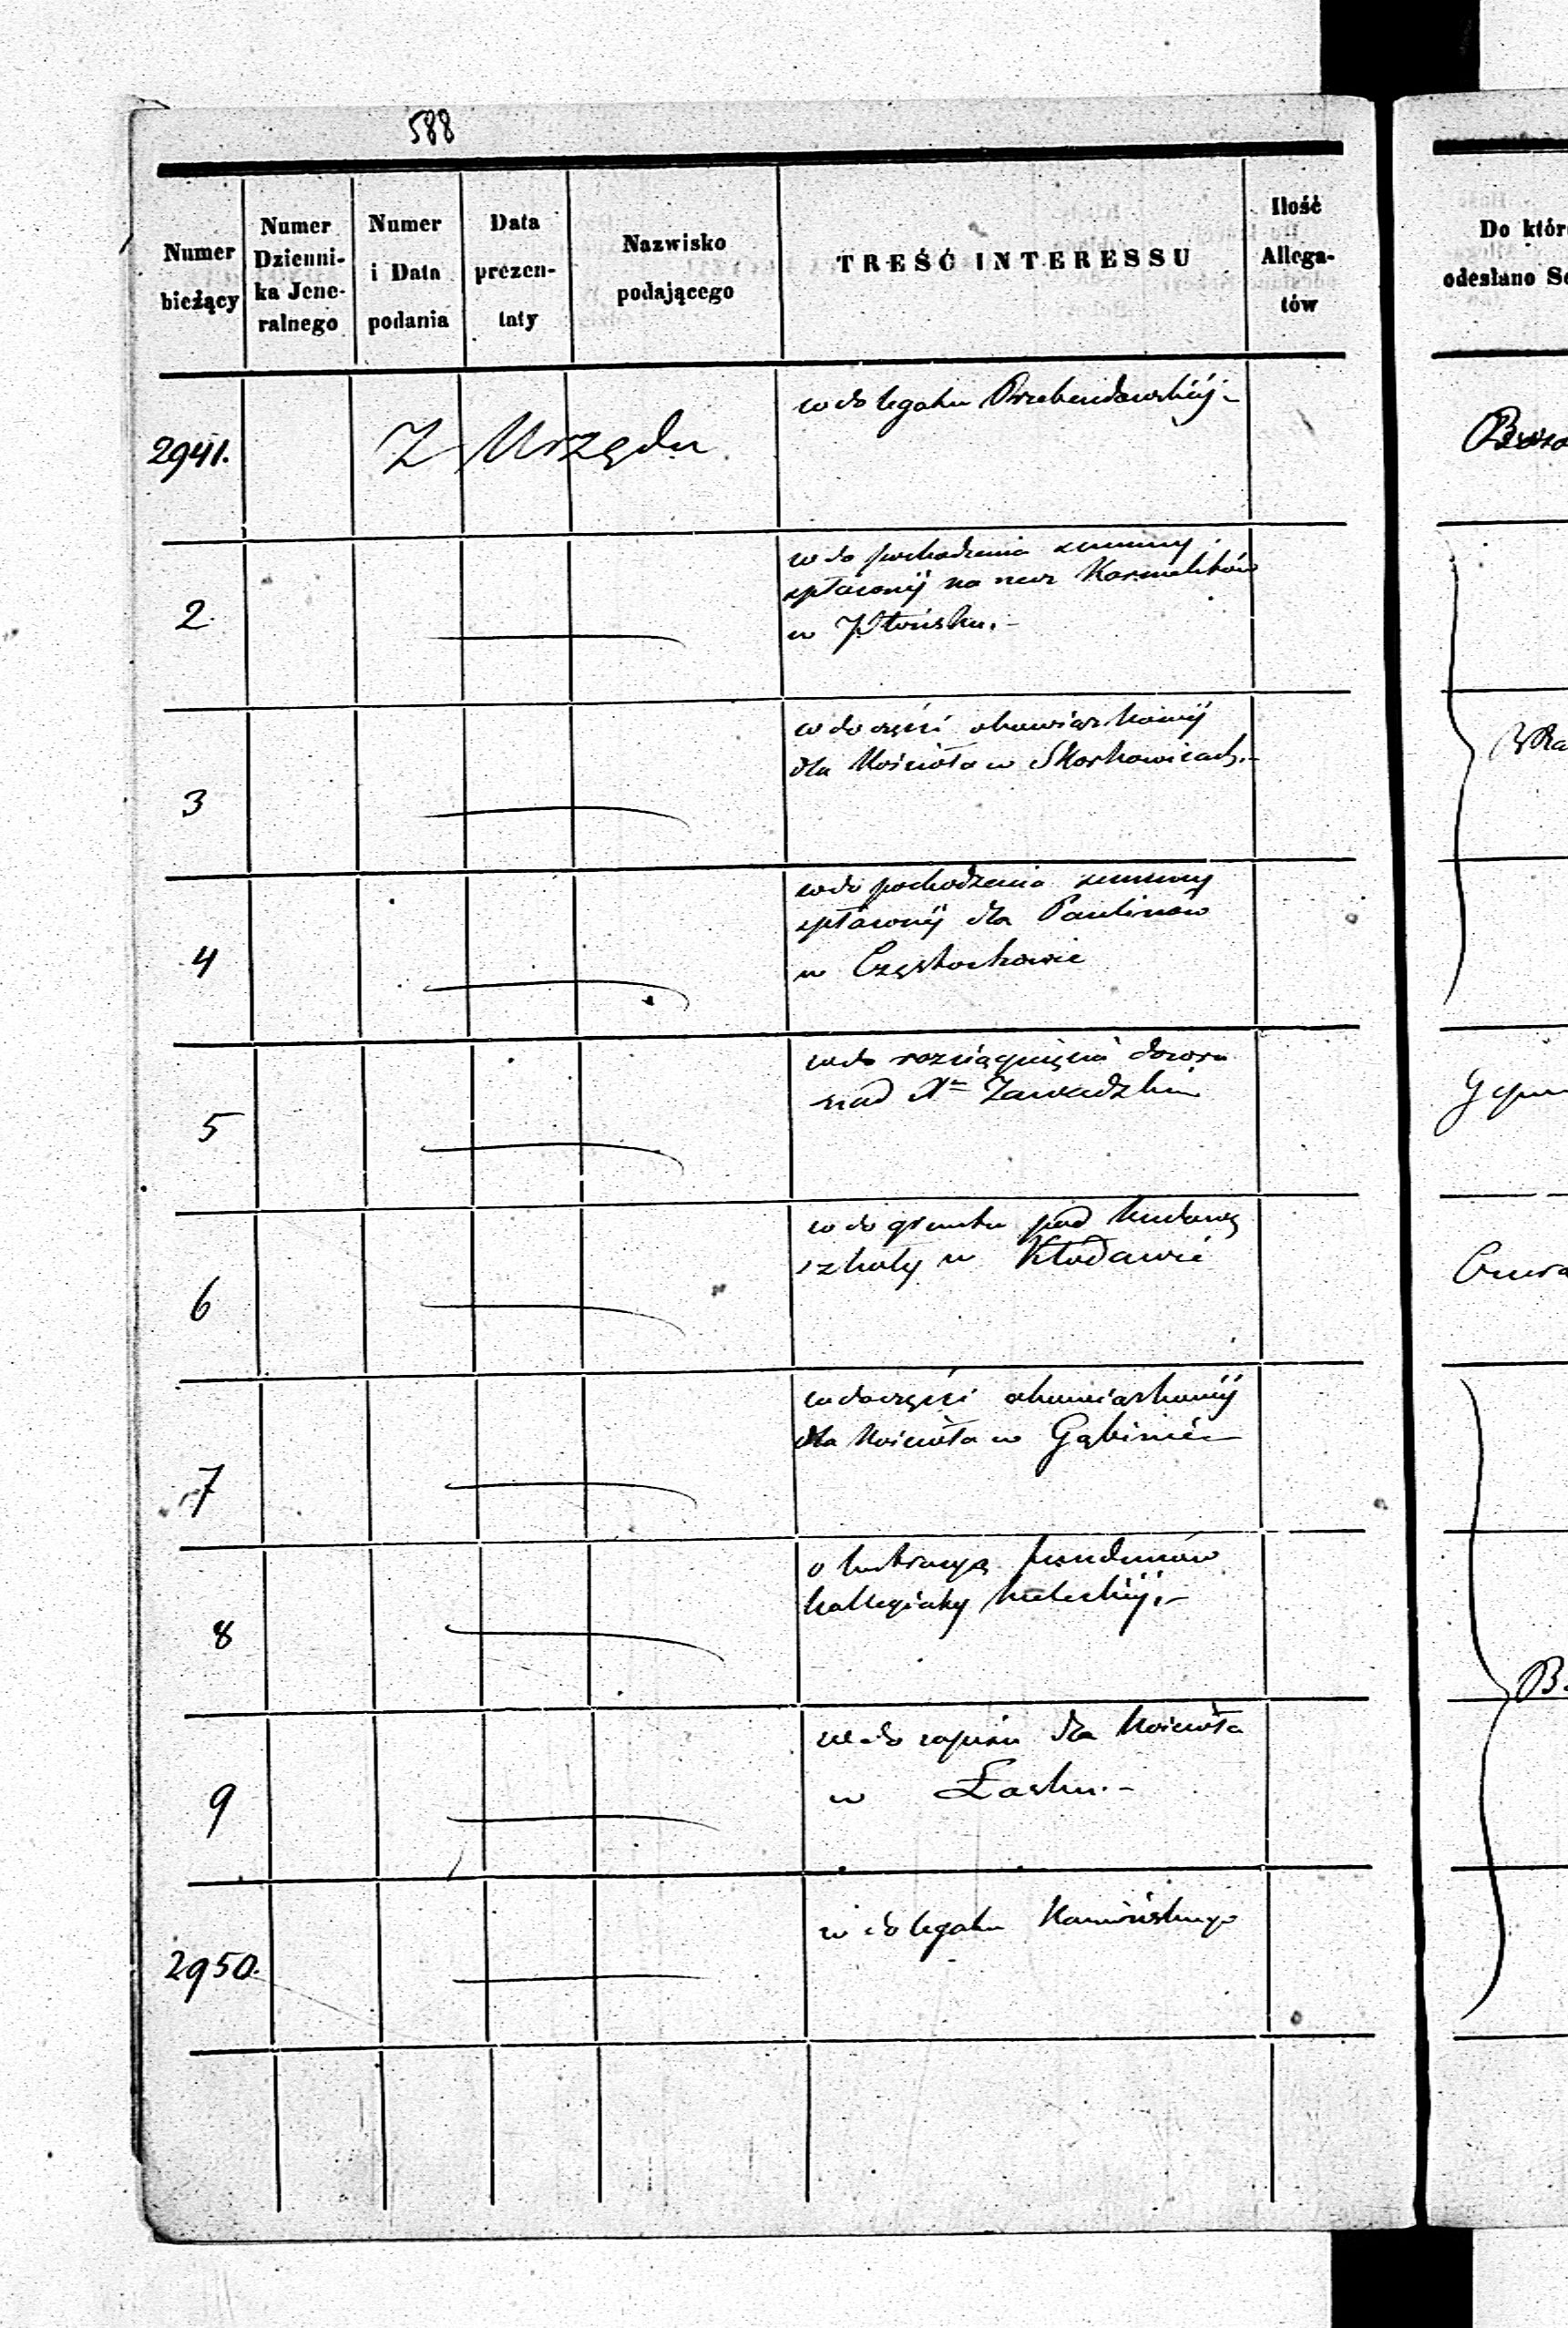 588
Numer bieżący
Numer Dzienni-ka Jene-ralnego
Numer i Data podania
Data prezen-taty
Nazwisko podającego
TREŚĆ INTERESSU
Ilość Allega-tów
Do któr
odesłano Se
2941.
Z Urzędu
w do legatu Przebendowskiéj.-
2.
w do pochodzenia summy
spłaconéj na rzecz Karmelitów
w Płońsku.-
3
w do części obowiązkowéj
dla Kościoła w Skoszewicach.-
4
w do pochodzenia summy
spłaconéj dla Paulinów
w Częstochowie
5
w do rozciągnięcia dozoru
nad X Zawadzkim
6
w do gruntu pod budowę
szkoły w Kłodawie
7
w do części obowiązkowéj
dla Kościoła w Gąbinie
8
o lustracyą funduszów
kollegiaty kieleckiéj.-
9
w do zapisu dla Kościoła
w Łasku.-
2950.
w do legatu Kamińskiego